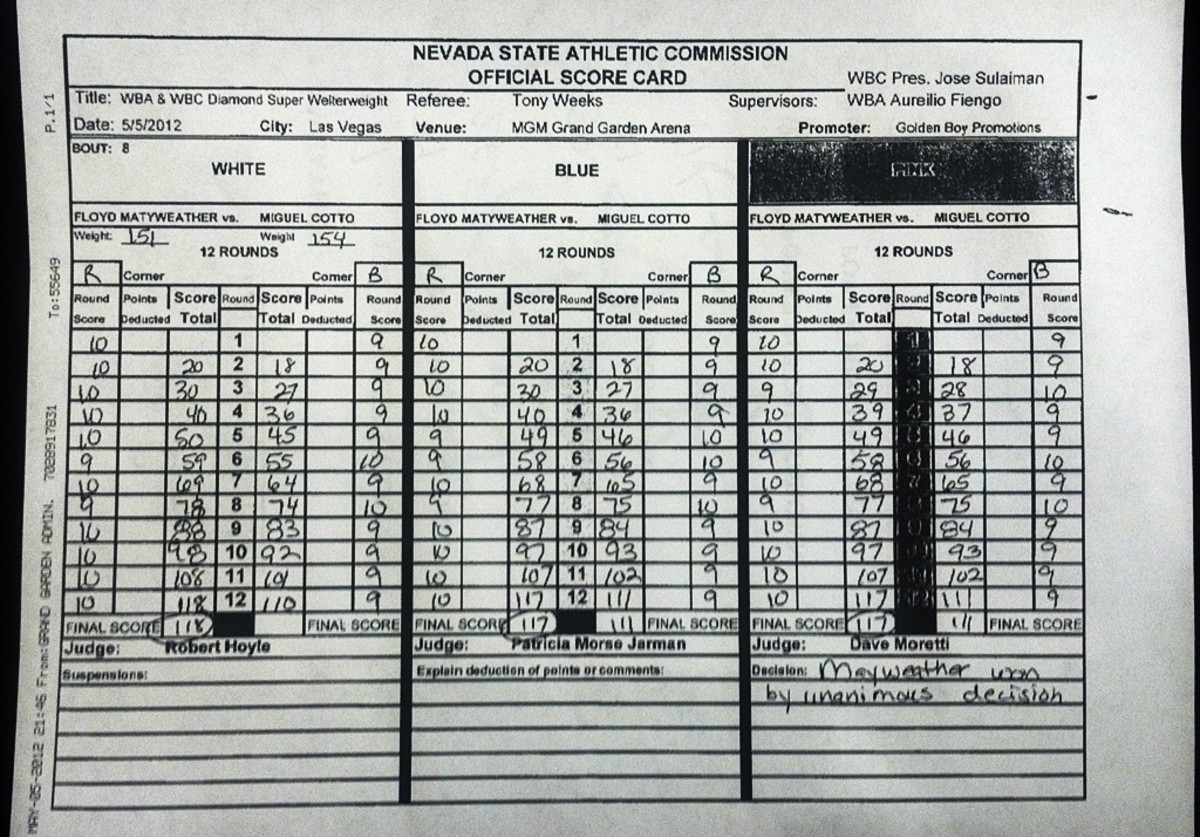 NEVADA STATE ATHLETIC COMMISSION
OFFICIAL SCORE CARD
WBC Pres. Jose Sulaiman
Title: WBA & WBC Diamond Super Welterweight Referee: Tony Weeks Supervisors: WBA Aureilio Fiengo
Date: 5/5/2012 City: Las Vegas Venue: MGM Grand Garden Arena Promoter: Golden Boy Promotions
BOUT: 8
WHITE BLUE PINK
FLOYD MATYWEATHER vs. MIGUEL COTTO FLOYD MATYWEATHER vs. MIGUEL COTTO FLOYD MATYWEATHER vs. MIGUEL COTTO
Weight: 151 Weight 154
12 ROUNDS 12 ROUNDS 12 ROUNDS
R Corner Corner B R Corner Corner B R Corner Corner B
Round Points Score Round Score Points Round Round Points Score Round Score Points Round Round Points Score Round Score Points Round
Score Deducted Total Total Deducted Score Score Deducted Total Total Deducted Score Score Deducted Total Total Deducted Score
10 1 9 10 1 9 10 1 9
10 20 2 18 9 10 20 2 18 9 10 20 2 18 9
10 30 3 27 9 10 30 3 27 9 9 29 3 28 10
10 40 4 36 9 10 40 4 36 9 10 39 4 37 9
10 50 5 45 9 9 49 5 46 10 10 49 5 46 9
9 59 6 55 10 9 58 6 56 10 9 58 6 56 10
10 69 7 64 9 10 68 7 65 9 10 68 7 65 9
9 78 8 74 10 9 77 8 75 10 9 77 8 75 10
10 88 9 83 9 10 87 9 84 9 10 87 9 84 9
10 98 10 92 9 10 97 10 93 9 10 97 10 93 9
10 108 11 101 9 10 107 11 102 9 10 107 11 102 9
10 118 12 110 9 10 117 12 111 9 10 117 12 111 9
FINAL SCORE 118 FINAL SCORE FINAL SCORE 117 111 FINAL SCORE FINAL SCORE 117 111 FINAL SCORE
Judge: Robert Hoyle Judge: Patricia Morse Jarman Judge: Dave Moretti
Suspensions: Explain deduction of points or comments: Decision: Mayweather won
by unanimous decision
MAY-05-2012 21:46 From:GRAND GARDEN ADMIN. 7028917831 To:55649 P.1/1